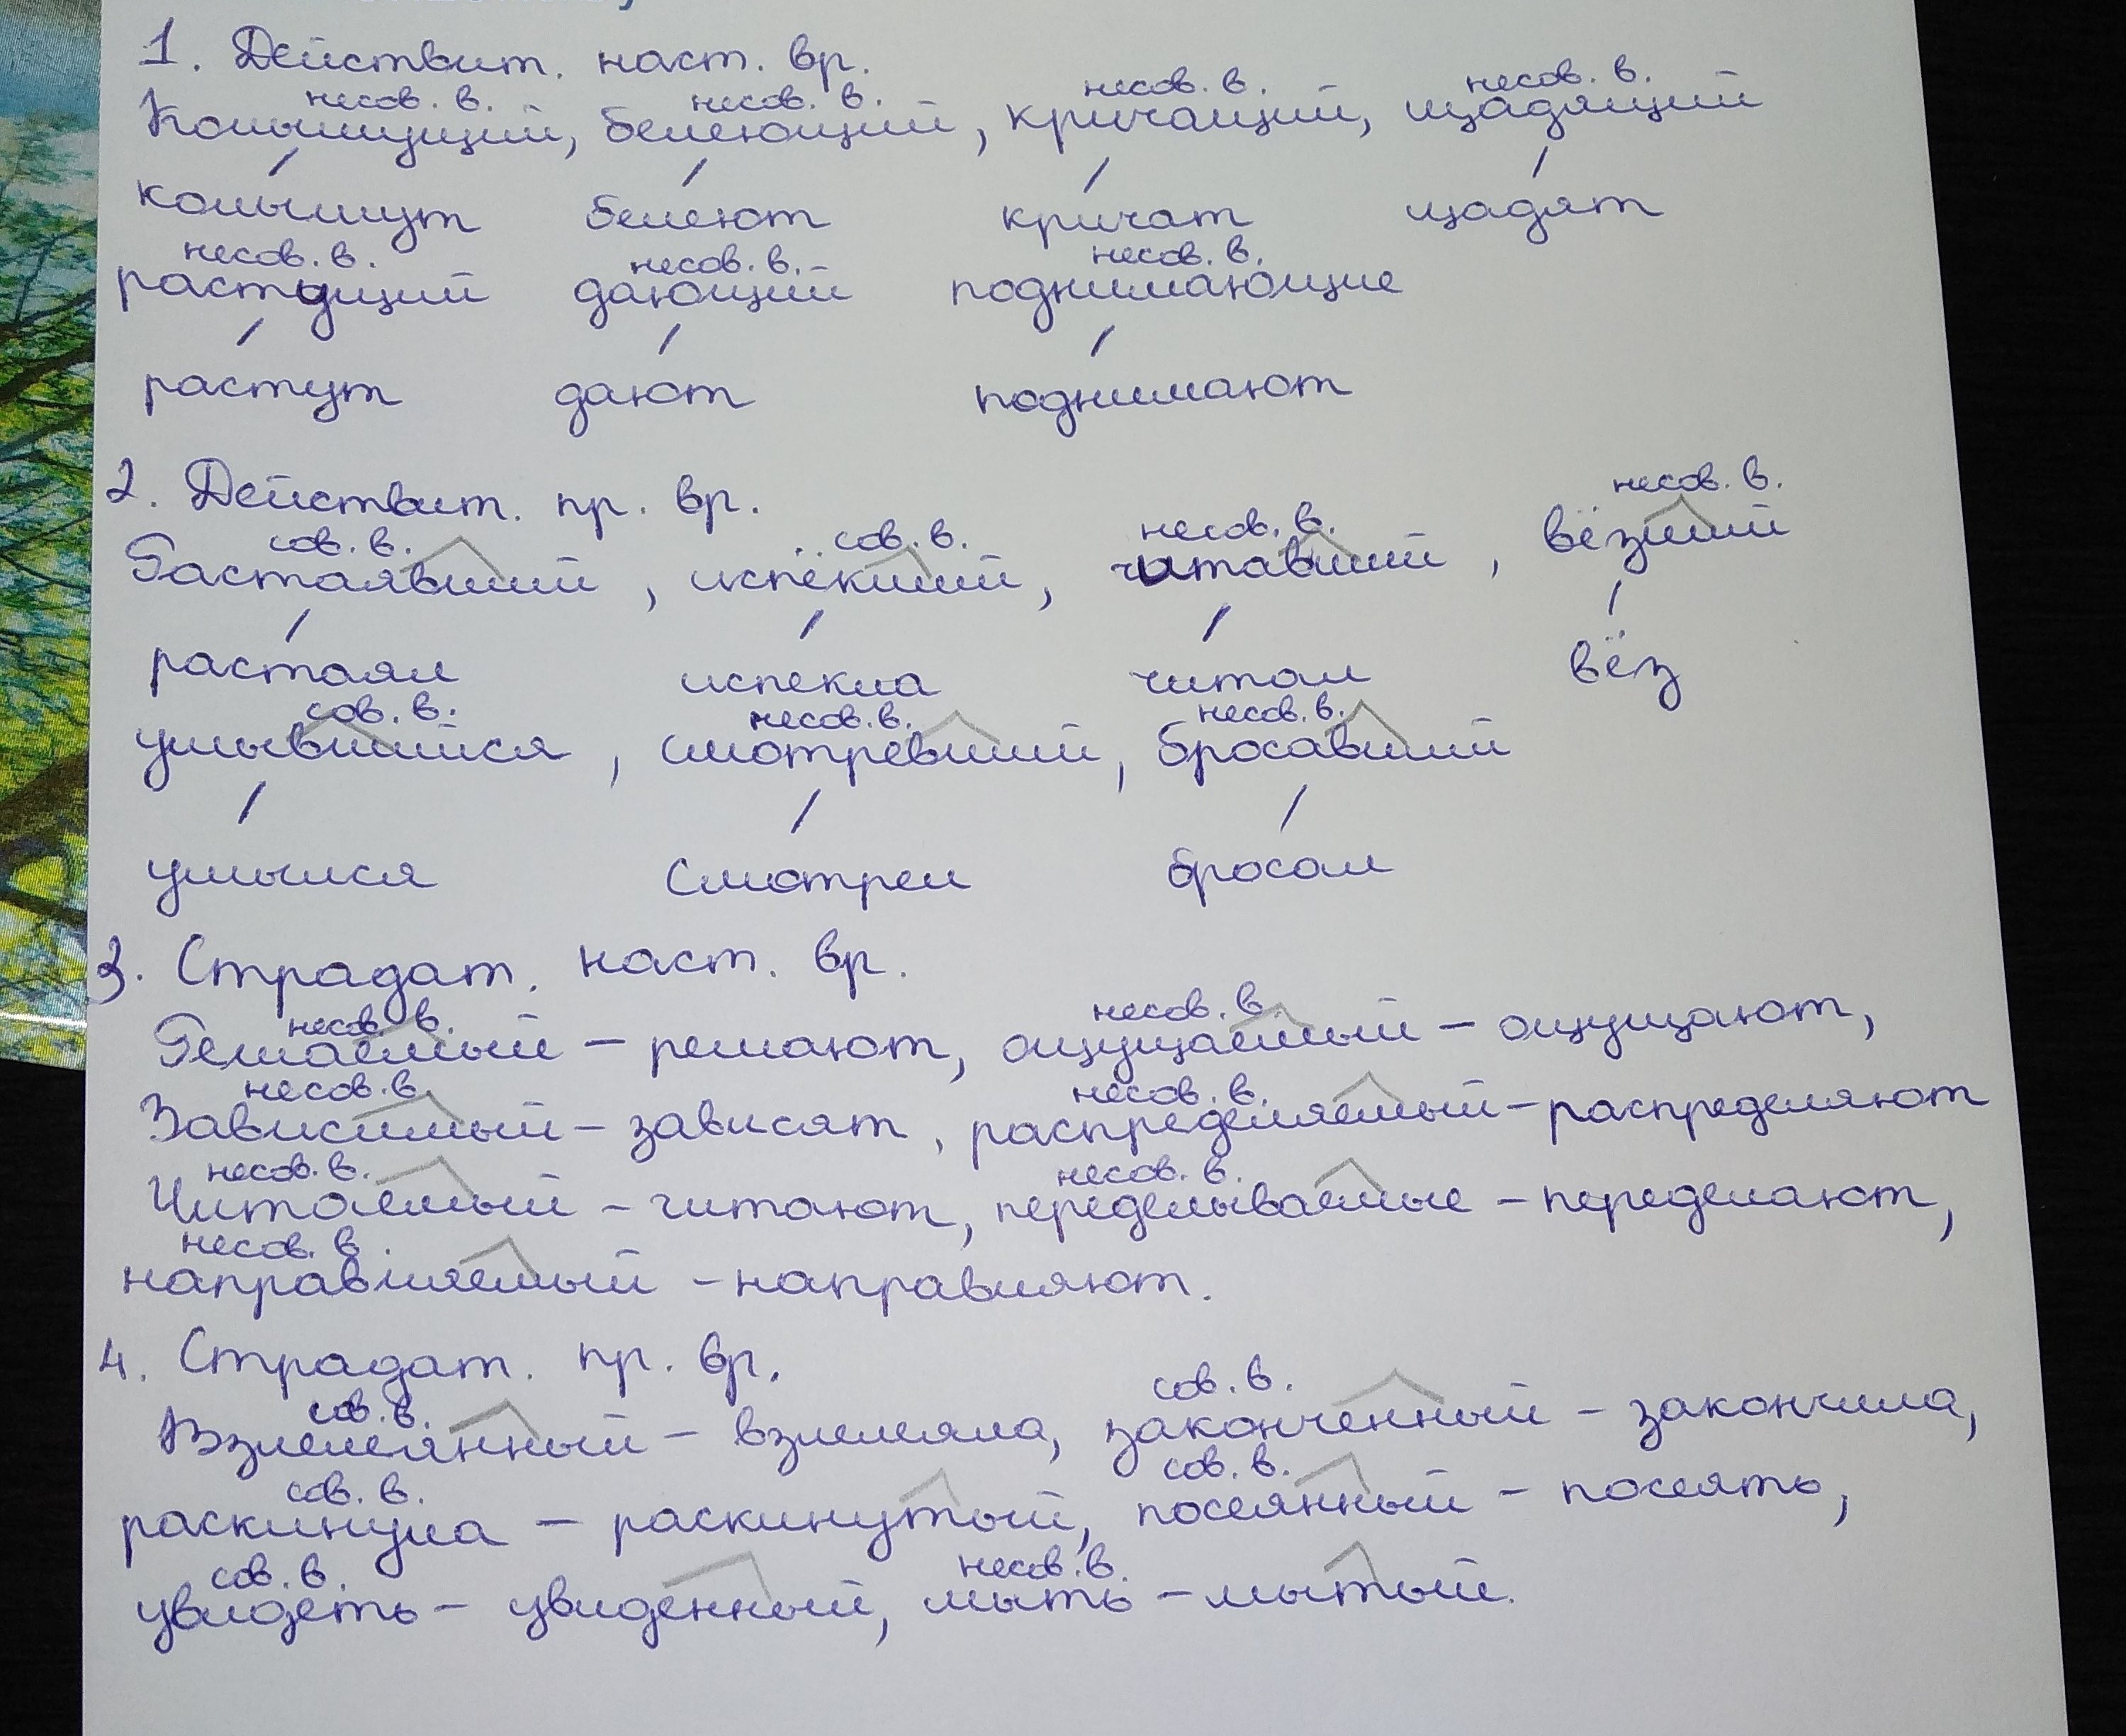 1. Действит. наст. вр.
несов. в. несов. в. несов. в. несов. в.
Колышущий, белеющий, кричащий, щадящий
колышут белеют кричат щадят
несов. в. несов. в. несов. в.
растущий дающий поднимающие
растут дают поднимают
2. Действит. пр. вр.
сов. в. сов. в. несов. в. несов. в.
Растаявший, испёкший, читавший, вёзший
растаял испекла читал вёз
сов. в. несов. в. несов. в.
умывшийся, смотревший, бросавший
умылся смотрел бросал
3. Страдат. наст. вр.
несов. в. несов. в.
Решаемый – решают, ощущаемый – ощущают,
несов. в. несов. в.
Зависимый – зависят, распределяемый – распределяют
несов. в. несов. в.
Читаемый – читают, переделываемые – переделают,
несов. в.
направляемый – направляют.
4. Страдат. пр. вр.
сов. в. сов. в.
Взлелеянный – взлелеяла, законченный – закончила,
сов. в. сов. в.
раскинула – раскинутый, посеянный – посеять,
сов. в. несов. в.
увидеть – увиденный, мыть – мытый.